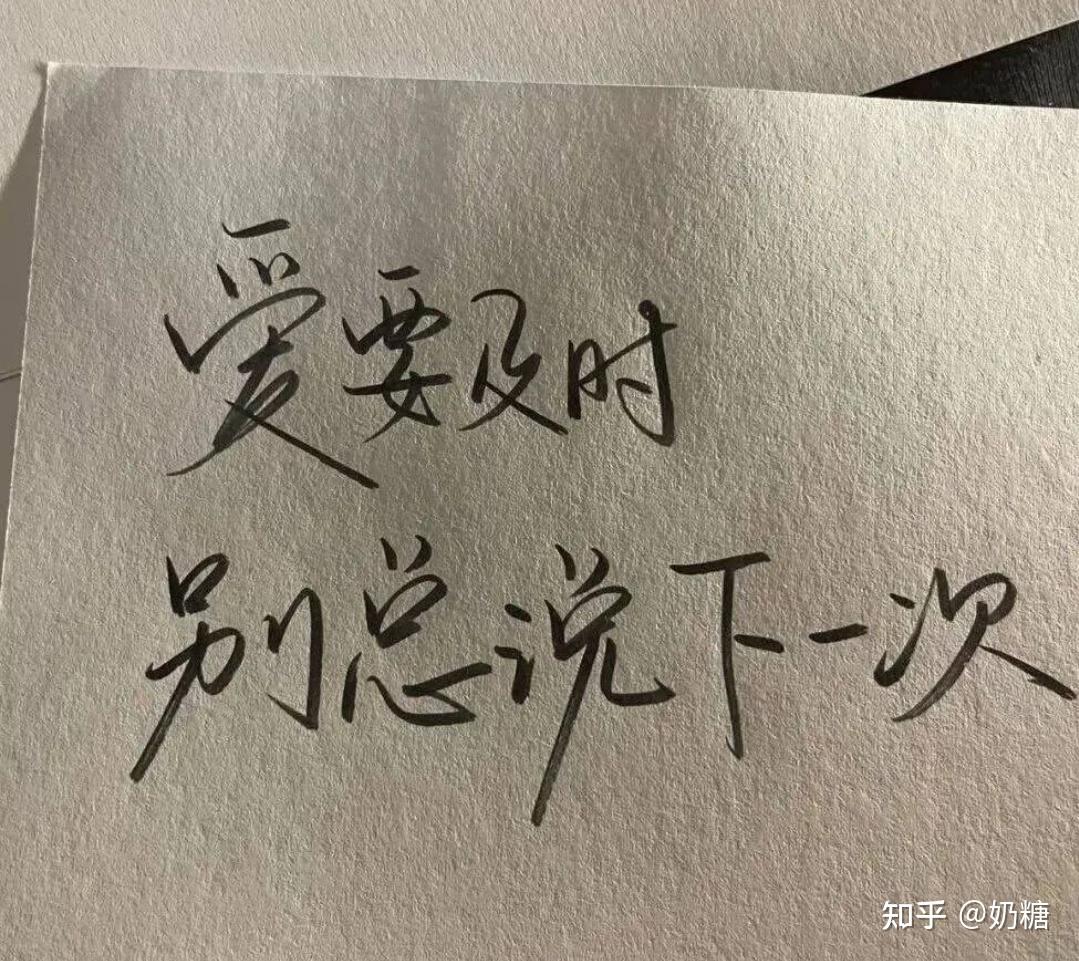 爱要及时
别总说下一次
知乎 @奶糖